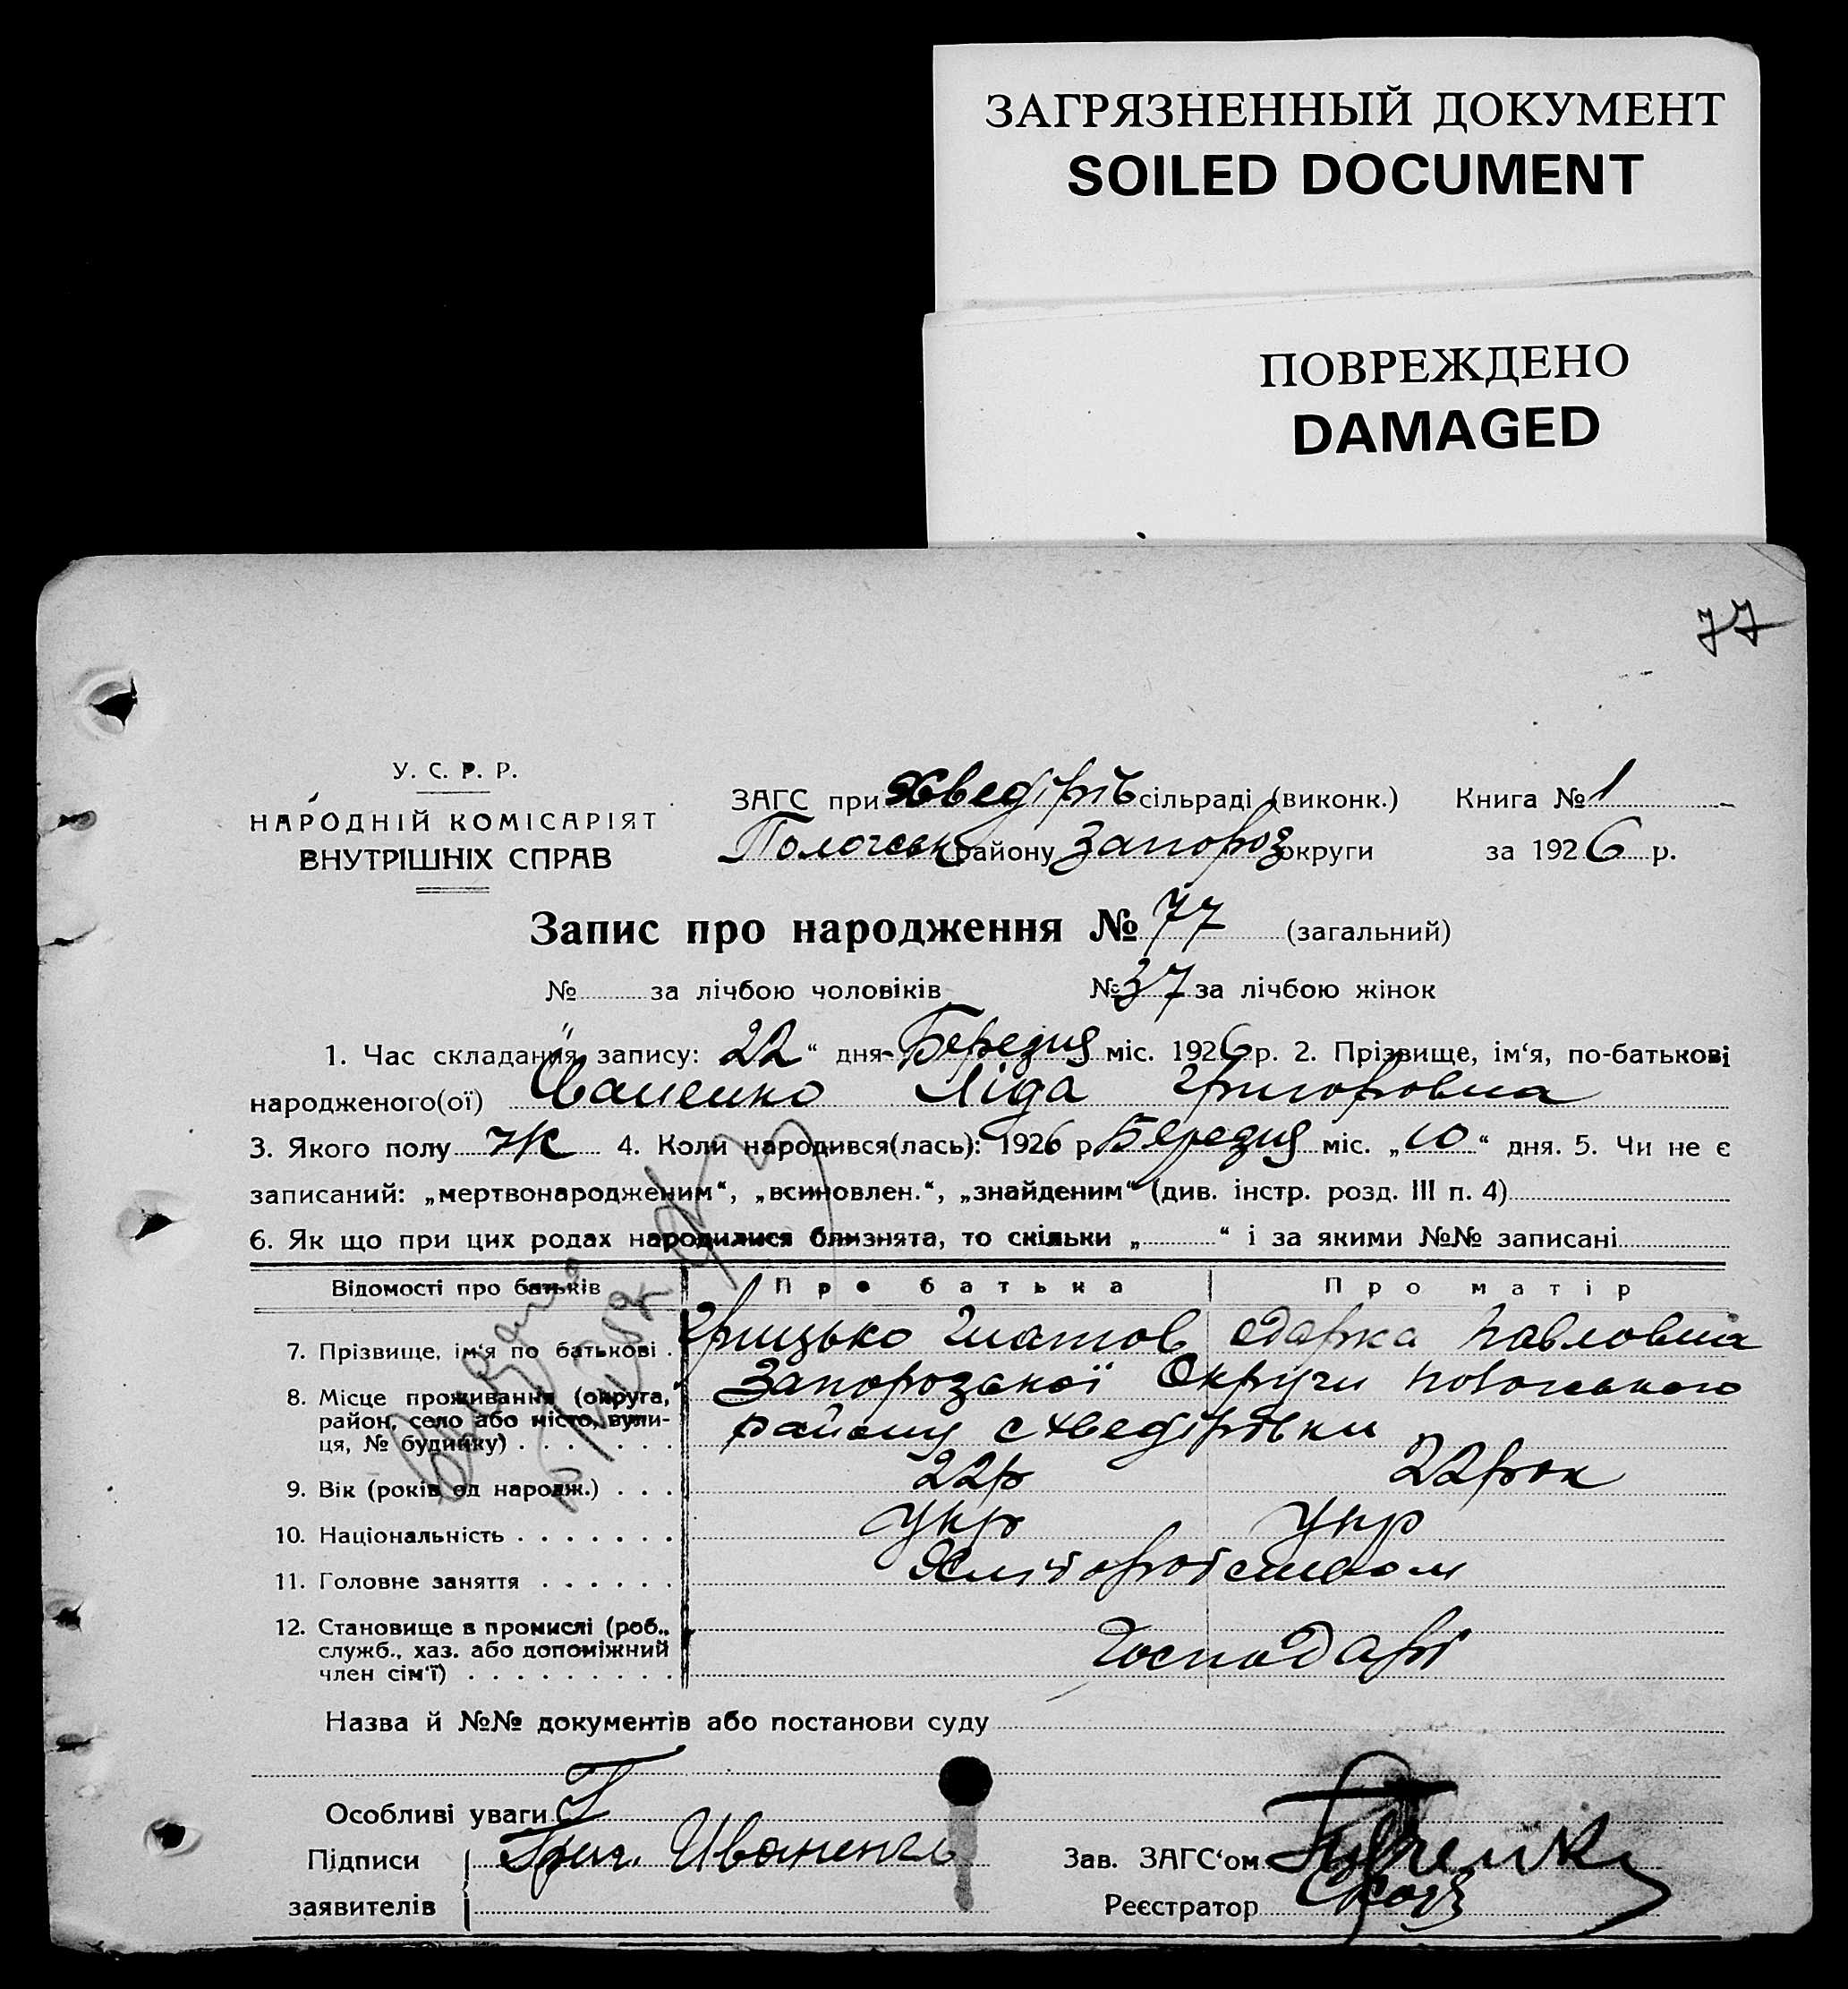 ЗАГРЯЗНЕННЫЙ ДОКУМЕНТ
SOILED DOCUMENT
ПОВРЕЖДЕНО
DAMAGED
77
У. С. Р. Р.
НАРОДНІЙ КОМІСАРІЯТ
ВНУТРІШНІХ СПРАВ
ЗАГС при Хведірів сільраді (виконк.) Книга № 1
Пологськ району Запороз округи за 1926 р.
Запис про народження № 77 (загальний)
№ за лічбою чоловіків № 37 за лічбою жінок
1. Час складання запису: „22“ дня Березня міс. 1926 р. 2. Прізвище, ім‘я, по-батькові
народженого(ої) Іваненко Ліда Григоровна
3. Якого полу Ж 4. Коли народився(лась): 1926 р. Березня міс. „10“ дня. 5. Чи не є
записаний: „мертвонародженим“, „всиновлен.“, „знайденим“ (див. інстр. розд. III п. 4)
6. Як що при цих родах народилися близнята, то скільки „ “ і за якими №№ записані
Відомості про батьків Про батька Про матір
7. Прізвище, ім‘я по батькові . Грицько Одарка Павловна
8. Місце проживання (округа, Запорозької Округи Пологського
район, село або місто, вули- району с Хведірівки
ця, № будинку) . . . . . . .
9. Вік (років од народж.) . . . 22р 22рок
10. Національність . . . . . . . Укр Укр
11. Головне заняття . . . . . . Хліборобством
12. Становище в промислі (роб.,
служб., хаз. або допоміжний Господарі
член сім‘ї) . . . . . . . . .
Назва й №№ документів або постанови суду
Особливі уваги
Підписи Григ. Иваненко Зав. ЗАГС‘ом
заявителів Реєстратор